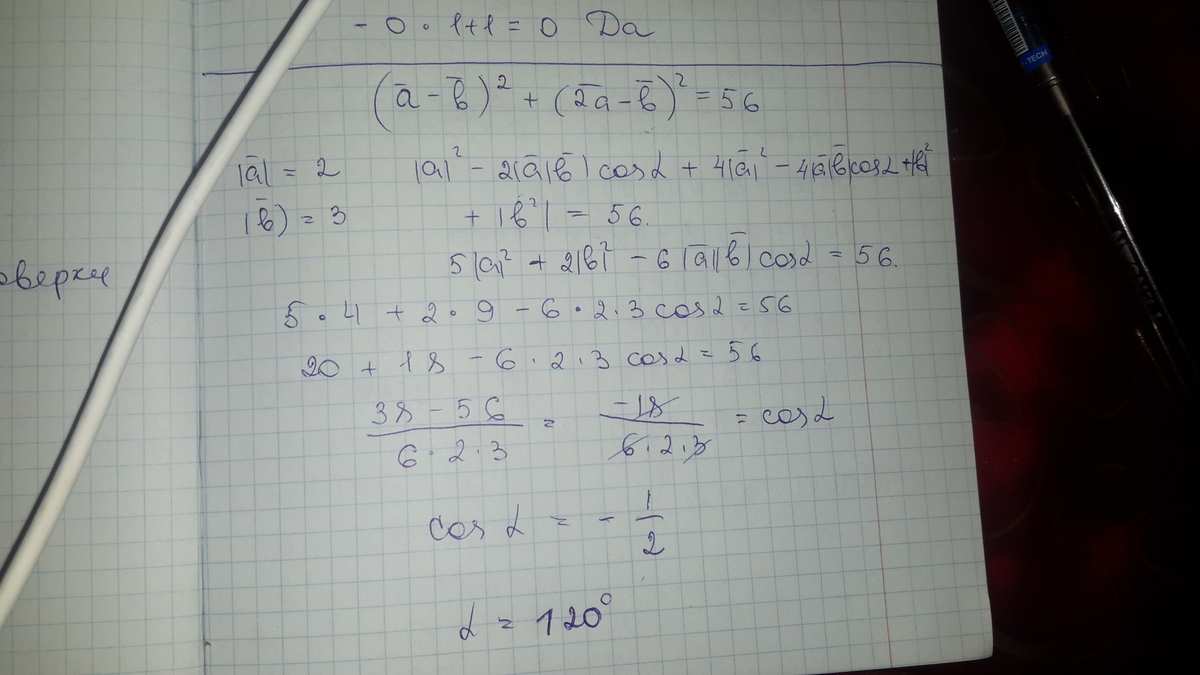 - 0 · 1+1 = 0 Да
(a̅ - b̅)² + (2̅a - b̅)² = 56
|a̅| = 2 |a|² - 2|a̅|b̅) cosα + 4|a̅|² - 4|a̅|b̅|cosα +|b|²
|b̅) = 3 + |b²| = 56.
5|a|² + 2|b|² - 6|a̅||b̅|cosα = 56.
оверки
5 · 4 + 2 · 9 - 6 · 2 · 3 cosα = 56
20 + 18 - 6 · 2 · 3 cosα = 56
38 - 56 / 6 · 2 · 3 = -18 / 6 · 2 · 3 = cosα
cos α = - 1/2
α = 120°
-TECH